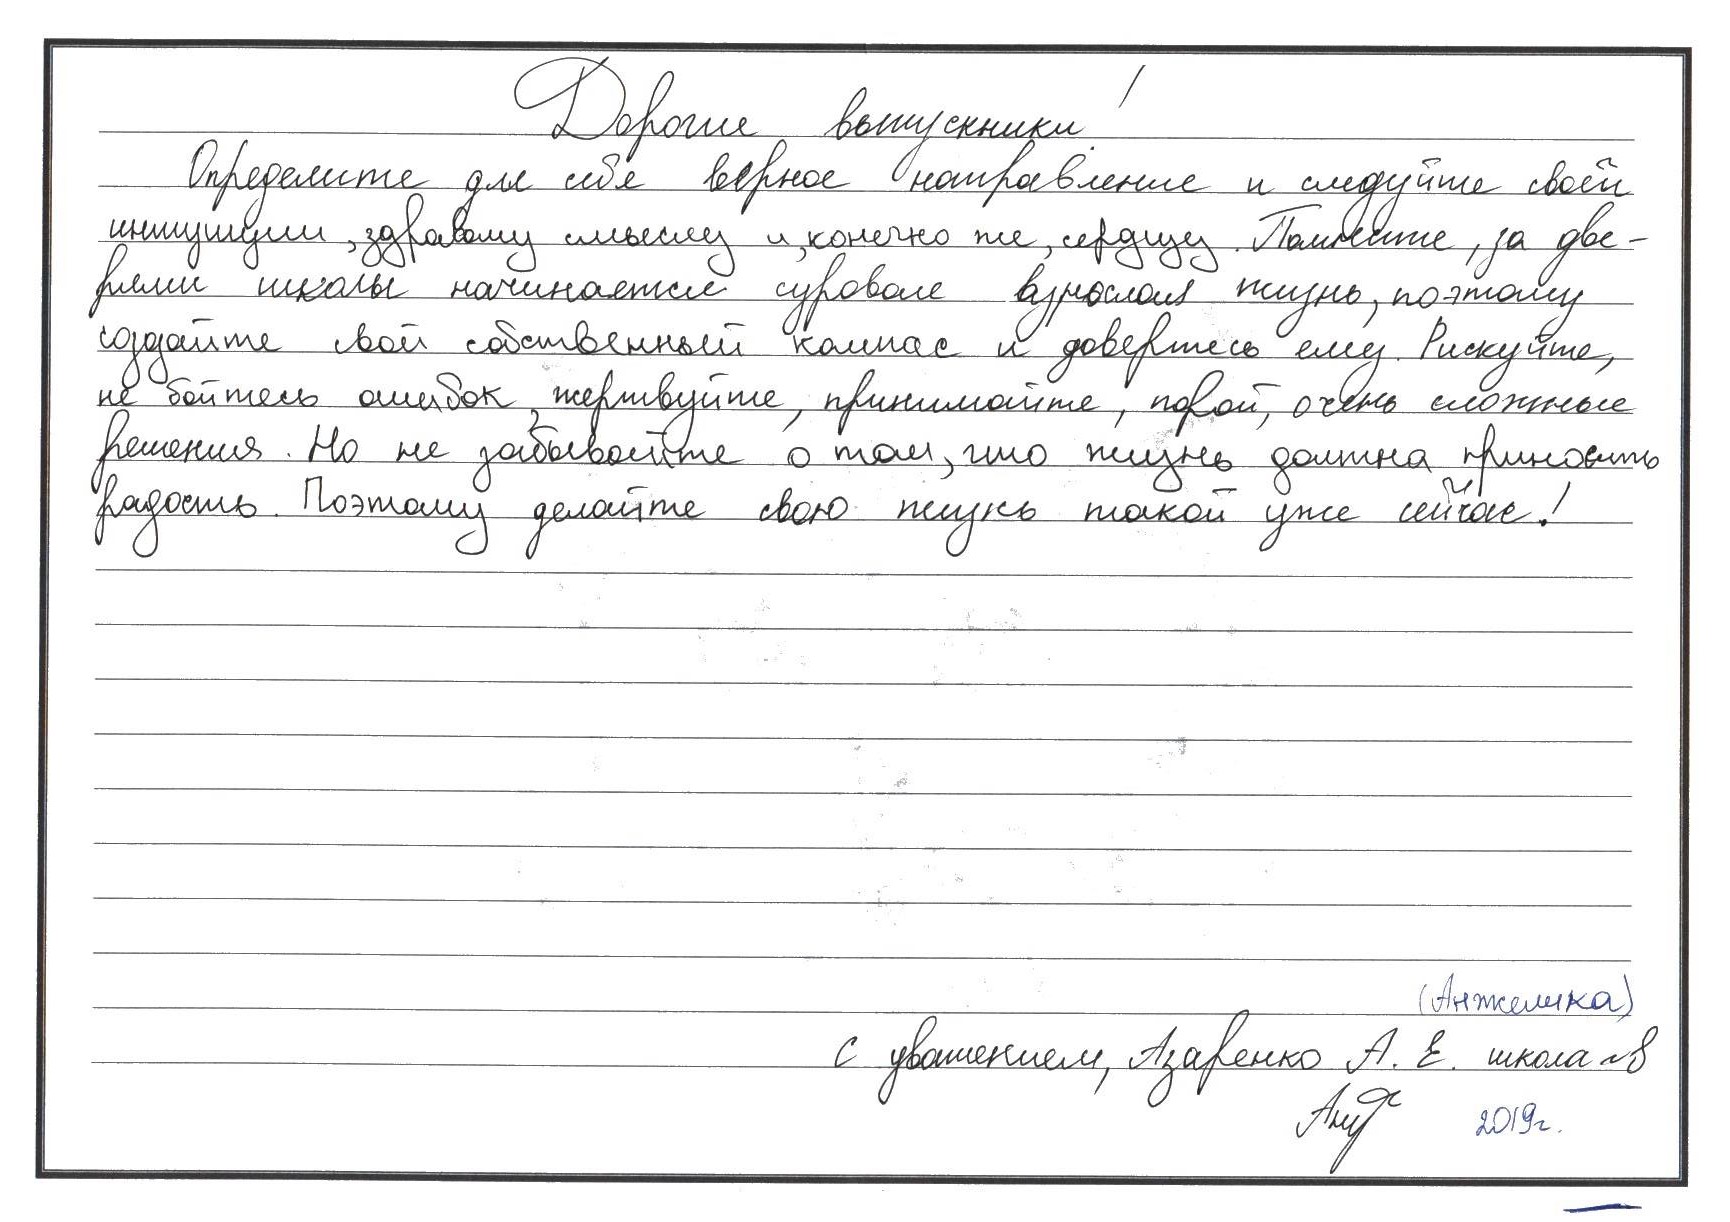 Дорогие выпускники!
Определите для себя верное направление и следуйте своей
интуиции, здравому смыслу и, конечно же, сердцу. Помните, за две-
рями школы начинается суровая взрослая жизнь, поэтому
создайте свой собственный компас и довертесь ему. Рискуйте,
не бойтесь ошибок, жертвуйте, принимайте, порой, очень сложные
решения. Но не забывайте о том, что жизнь должна приносить
радость. Поэтому делайте свою жизнь такой уже сейчас!
(Анжелика)
С уважением, Азаренко А. Е. школа №8
2019г.